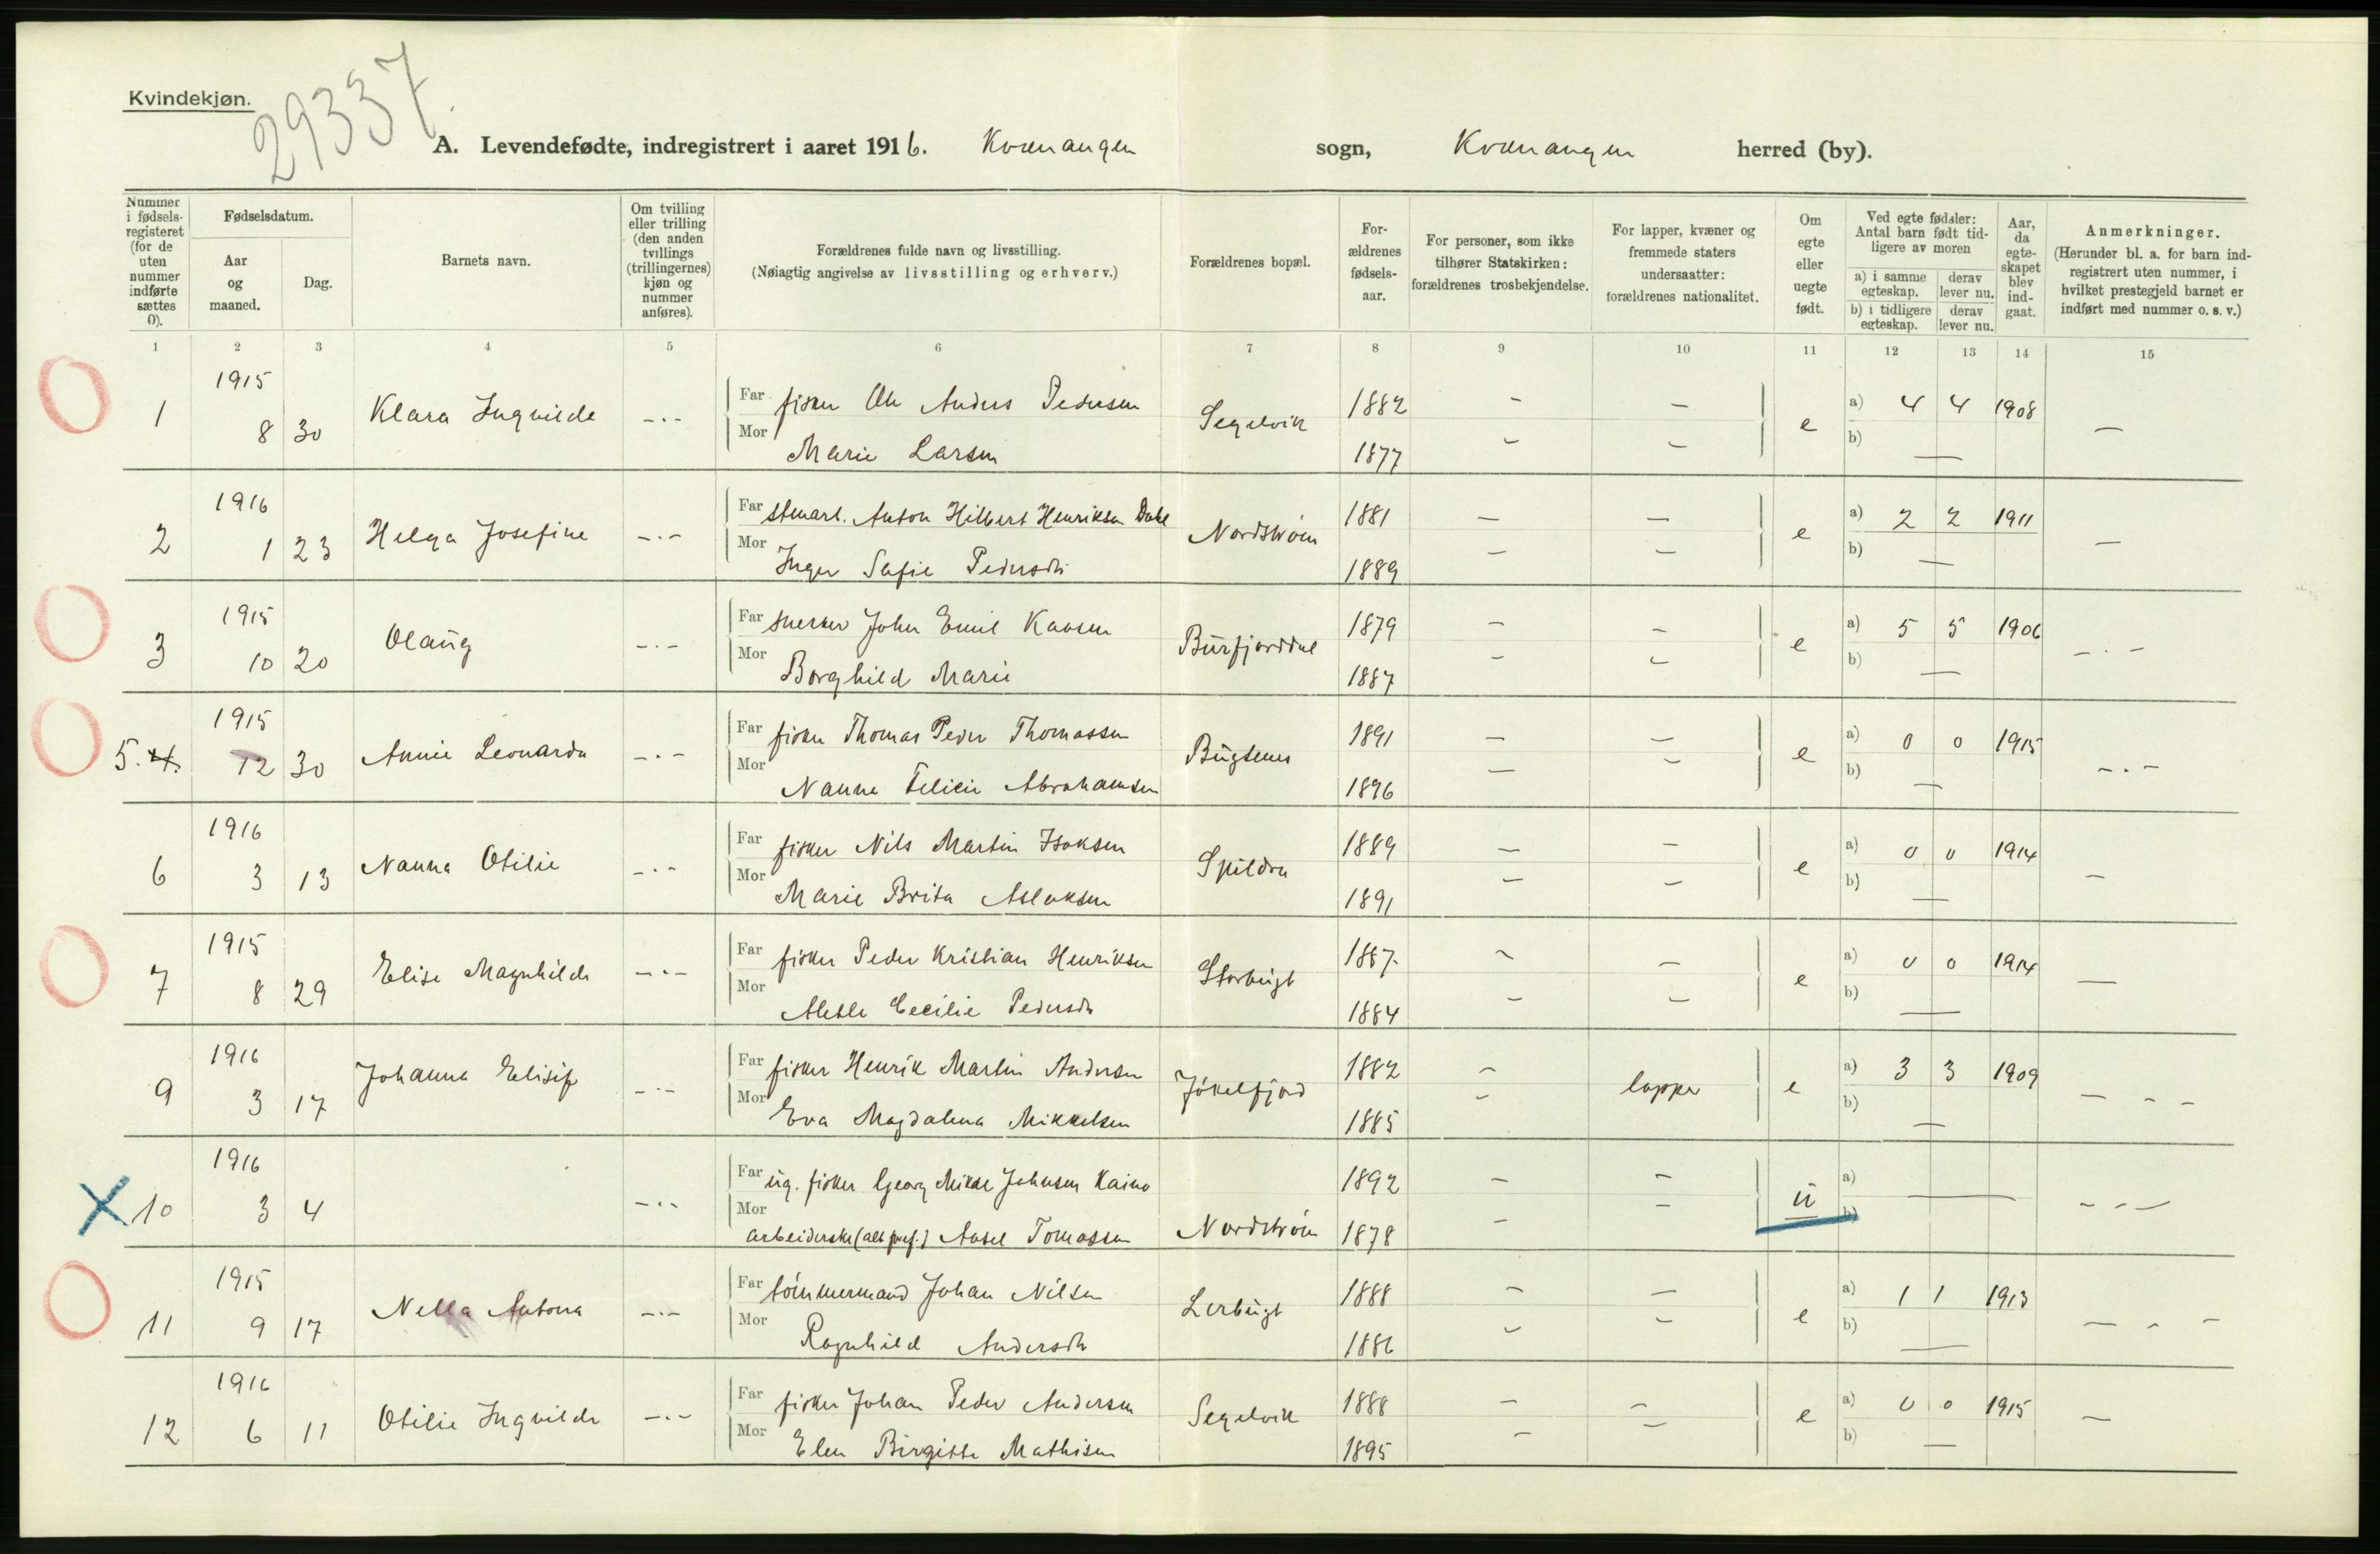 Kvindekjøn.
29337.
A. Levendefødte, indregistrert i aaret 1916. Kvænangen sogn, Kvænangen herred (by).
Nummer i fødsels-registeret (for de uten nummer indførte sættes 0).
Fødselsdatum.
Aar og maaned.
Dag.
Barnets navn.
Om tvilling eller trilling (den anden tvillings (trillingernes) kjøn og nummer anføres).
Forældrenes fulde navn og livsstilling.
(Nøiagtig angivelse av livsstilling og erhverv.)
Forældrenes bopæl.
For-ældrenes fødsels-aar.
For personer, som ikke tilhører Statskirken: forældrenes trosbekjendelse.
For lapper, kvæner og fremmede staters undersaatter: forældrenes nationalitet.
Om egte eller uegte født.
Ved egte fødsler: Antal barn født tid-ligere av moren
a) i samme egteskap. derav lever nu.
b) i tidligere egteskap. derav lever nu.
Aar, da egte-skapet blev ind-gaat.
Anmerkninger.
(Herunder bl. a. for barn ind-registrert uten nummer, i hvilket prestegjeld barnet er indført med nummer o. s. v.)
1 2 3 4 5 6 7 8 9 10 11 12 13 14 15
1915
1 8 30 Klara Ingvilde -.- Far fisker Ole Anders Pedersen Segelvik 1882 - - e a) 4 4 1908 -
Mor Marie Larsen 1877 - - b) -
1916
2 1 23 Helga Josefine -.- Far Anton Hilbert Henriksen Dahl Nordstrøm 1881 - - e a) 2 2 1911 -
Mor Inger Sofie Pedersdtr 1889 - - b) -
1915
3 10 20 Olaug -.- Far snekker John Emil Karlsen Burfjorddal 1879 - - e a) 5 5 1906 -.-
Mor Borghild Marie 1887 - - b) -
1915
5. 4. 12 30 Annie Leonarda -.- Far fisker Thomas Peder Thomassen Bugtenes 1891 - - e a) 0 0 1915 -.-
Mor Nanna Felicie Abrahamsen 1896 - - b) -
1916
6 3 13 Nanna Otilie -.- Far fisker Nils Martin Isaksen Spildra 1889 - - e a) 0 0 1914 -
Mor Marie Brita Aslaksen 1891 - - b) -
1915
7 8 29 Elise Magnhilde -.- Far fisker Peder Kristian Henriksen Storbugt 1887. - - e a) 0 0 1914 -
Mor Alette Cecilie Pedersdtr 1884 - - b) -
1916
9 3 17 Johanna Elisip -.- Far fisker Henrik Martin Andersen Jøkelfjord 1882 - lapper e a) 3 3 1909 - - -
Mor Eva Magdalena Mikkelsen 1885 - b) -
1916
X 10 3 4 -.- Far ug. fisker Georg Mikal Johnsen Kaino 1892 - - u a) - - - -
Mor arbeiderske Aasel Tomassen Nordstrøm 1878 - - b)
1915
11 9 17 Nella Antona -.- Far tømmermand Johan Nilsen Lerbugt 1888 - - e a) 1 1 1913 - - -
Mor Ragnhild Andersdtr 1886 - - b) -
1916
12 6 11 Otilie Ingvilde -.- Far fisker Johan Peder Andersen Segelvik 1888 - - e a) 0 0 1915 -
Mor Elen Birgitte Mathisen 1895 - - b) -